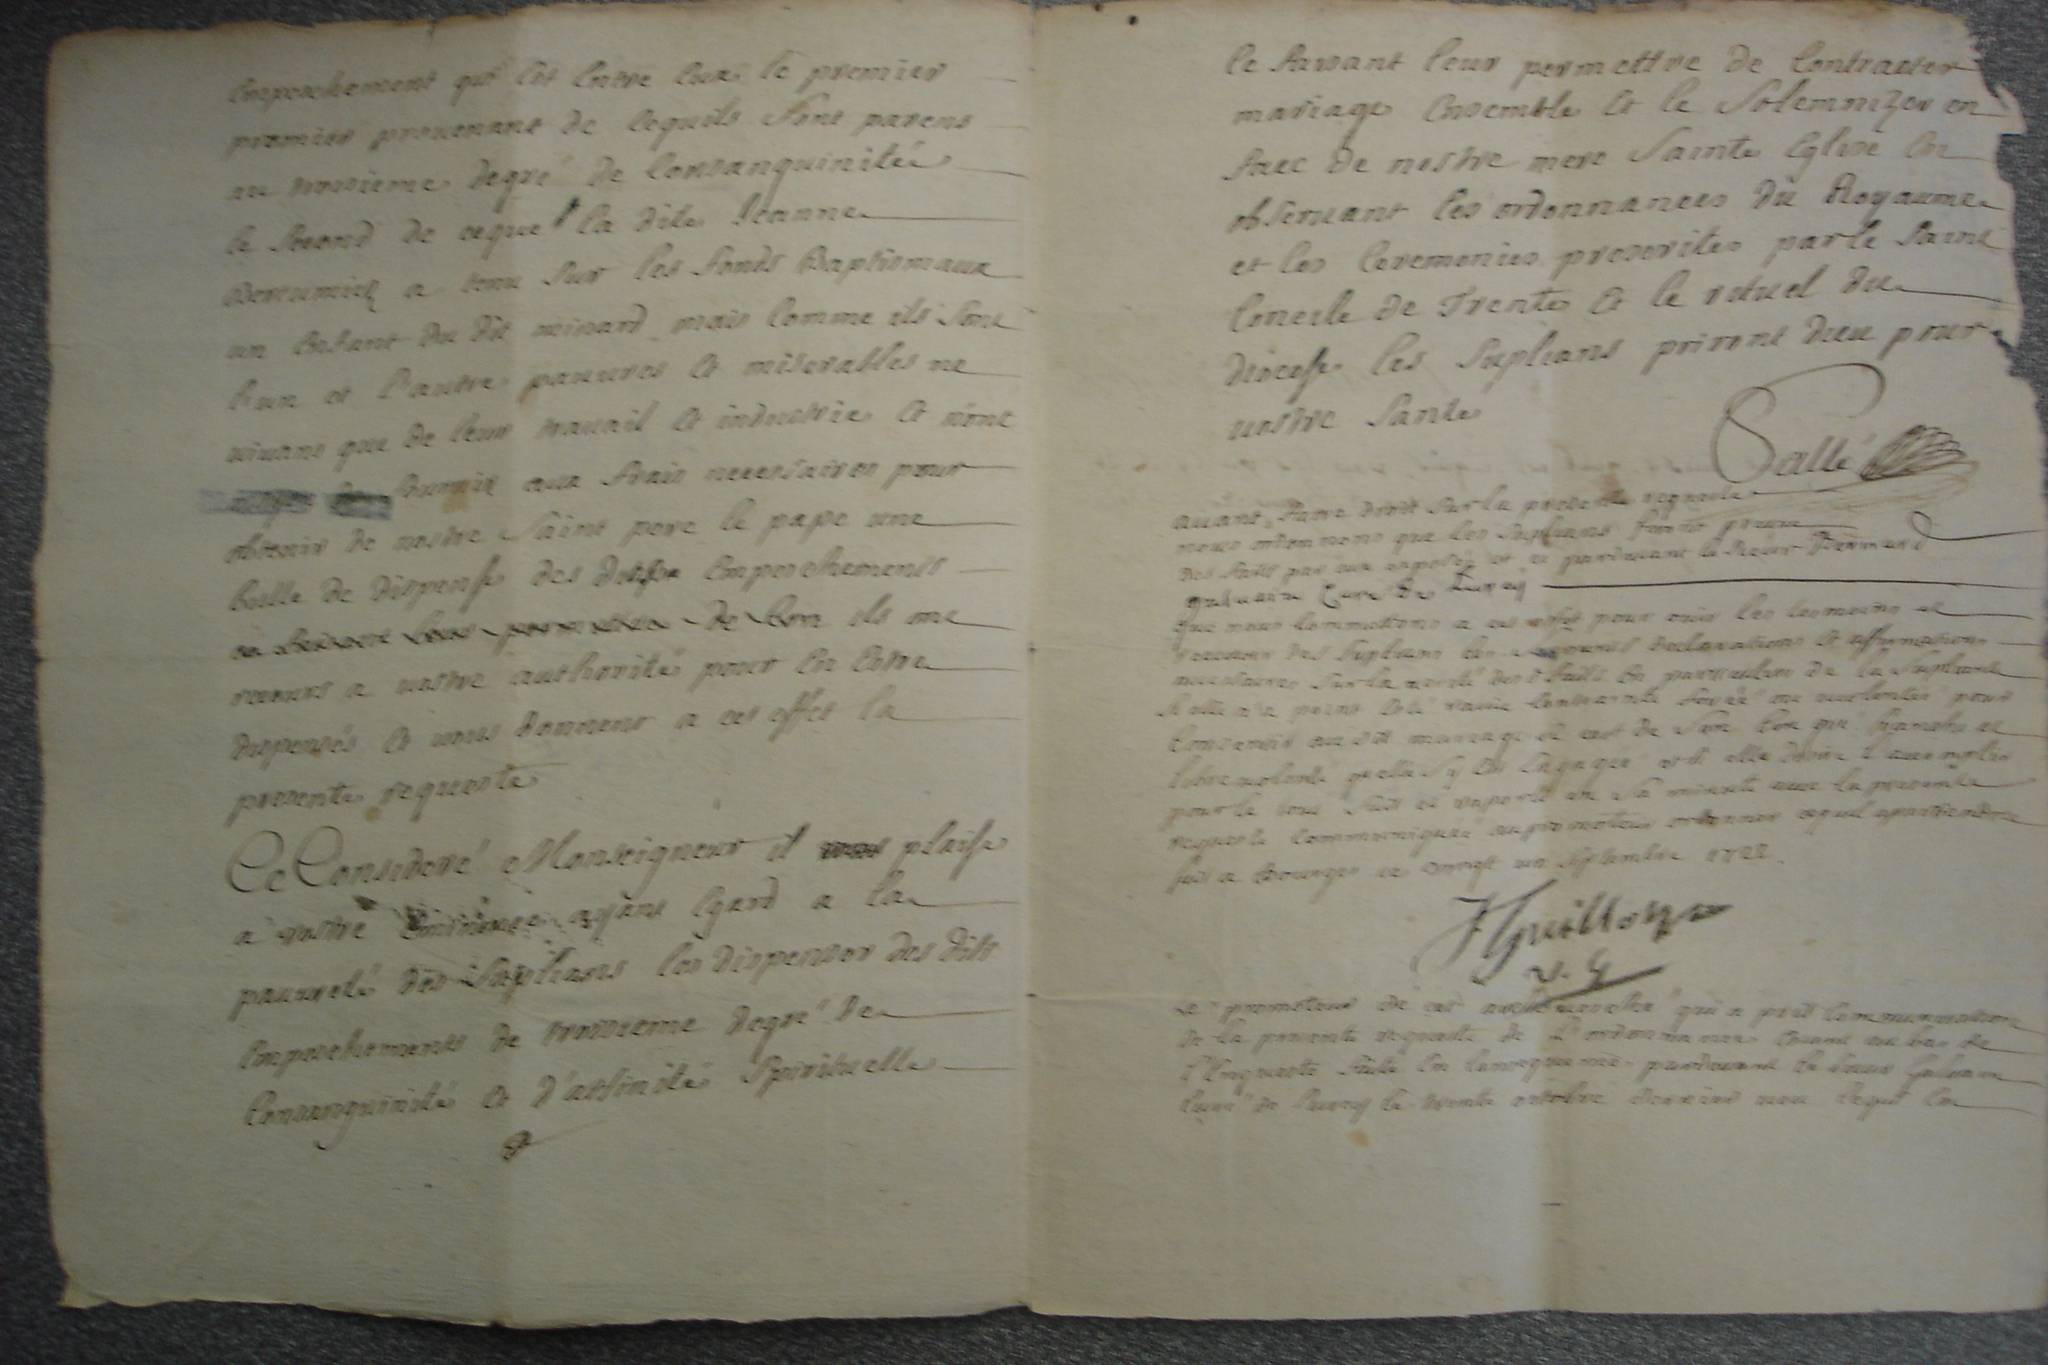 empeschement qui est entre eux le premier
premier provenant de cequils sont parens
au troisieme degré de consanguinité
le second de ceque la dite Jeanne
a tenu sur les fonds Baptismaux
un enfant du dit minard mais comme ils sont
l'un et l'autre pauures et miserables ne
viuans que de leur trauail et industrie et n'ont
fournir aux frais necessaires pour
obtenir de nostre Saint pere le pape une
bulle de dispense des dits empeschements
de ils ont
recours a vostre authorité pour en estre
dispensés et vous donnent a cet effet la
presente requeste
Ce Consideré Monseigneur il plaise
a vostre Eminence ayant egard a la
pauureté des Suplians les dispenser des dits
empeschements de troisieme degré de
Consanguinité et d'affinité Spirituelle
et
ce faisant leur permettre de Contracter
mariage ensemble et le Solemnizer en
face de nostre mere Sainte Eglise en
obseruant les ordonnances du Royaume
et les Ceremonies prescrites par le Saint
Concile de Trente et le rituel du
diocese les Suplians priront dieu pour
vostre Santé
Sallé
auant faire droit sur la presente requeste
nous ordonnons que les Suplians feront preuue
des faits par eux exposés et ce pardeuant le Sieur
Curé de
que nous Commettons a cet effet pour ouir les tesmoins et
receuoir des Suplians les Serments declarations et affirmations
necessaires sur la verité desd faits en particulier de la Supliante
si elle n'a point esté rauie Contrainte forcée ou violentée pour
Consentir au dit mariage si cest de Son bon gré franche et
libre volonté quelle s'y est engagée et si elle desire l'accomplir
pour le tout fait et raporté en Sa minute auec la presente
requeste Communiquée au promoteur ordonner cequil apartiendra
fait a Bourges ce vingt un Septembre 1722.
JGuillon
v. g
Le promoteur de cet archeuesché qui a pris Communication
de la presente requeste de l'ordonnance estant au bas de
l'Enqueste faite en Consequence pardeuant le Sieur
Curé de le trente octobre dernier